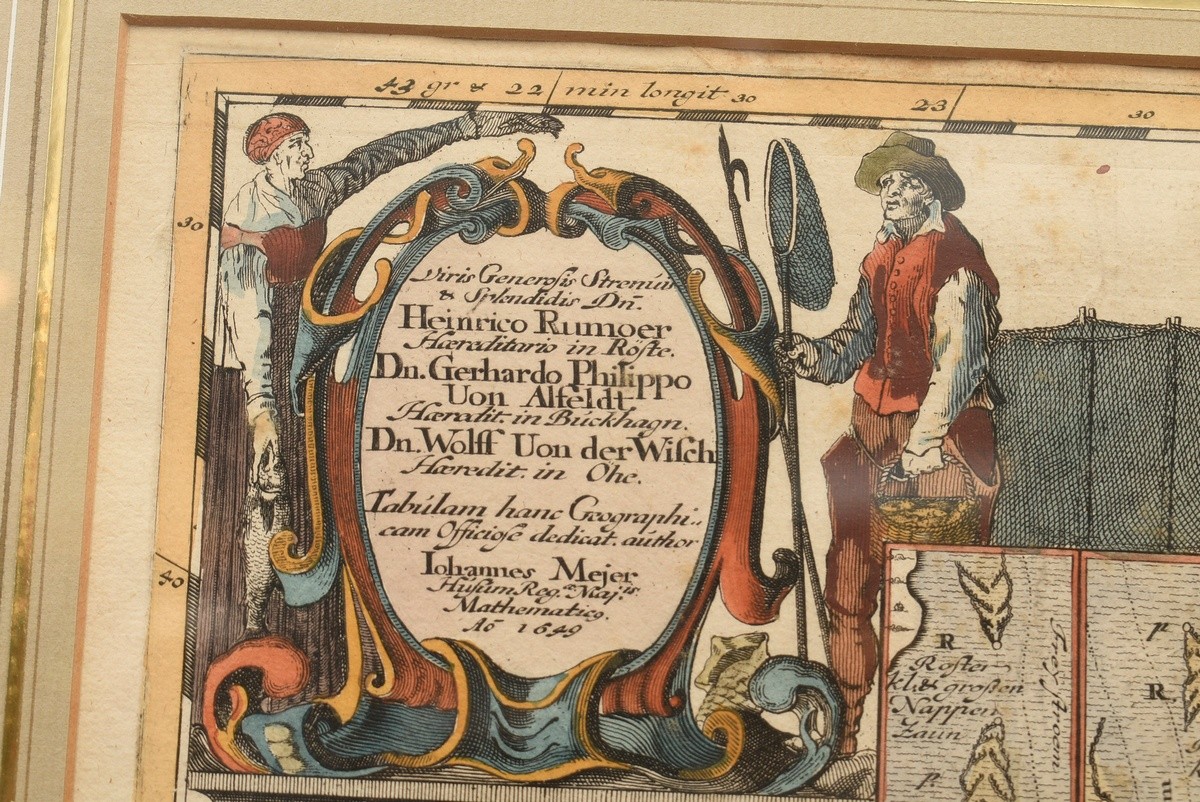 43 gr & 22 min longit 30 23 30
30
40
Viris Generosis Strenuis
& Splendidis Dn̄.
Heinrico Rumoer
Hæreditario in Röste.
Dn. Gerhardo Philippo
Uon Alfeldt
Hæredit. in Bückhagn.
Dn. Wolff Uon der Wisch
Hæredit. in Ohe.
Tabúlam hanc Geographi..
cam Officiosè dedicat. author
Iohannes Mejer
Husum Reg. Maj.is
Mathematicg.
Aō 1649
R
Roster
kl. & großen
Nappen
Zaun
p.
p
R